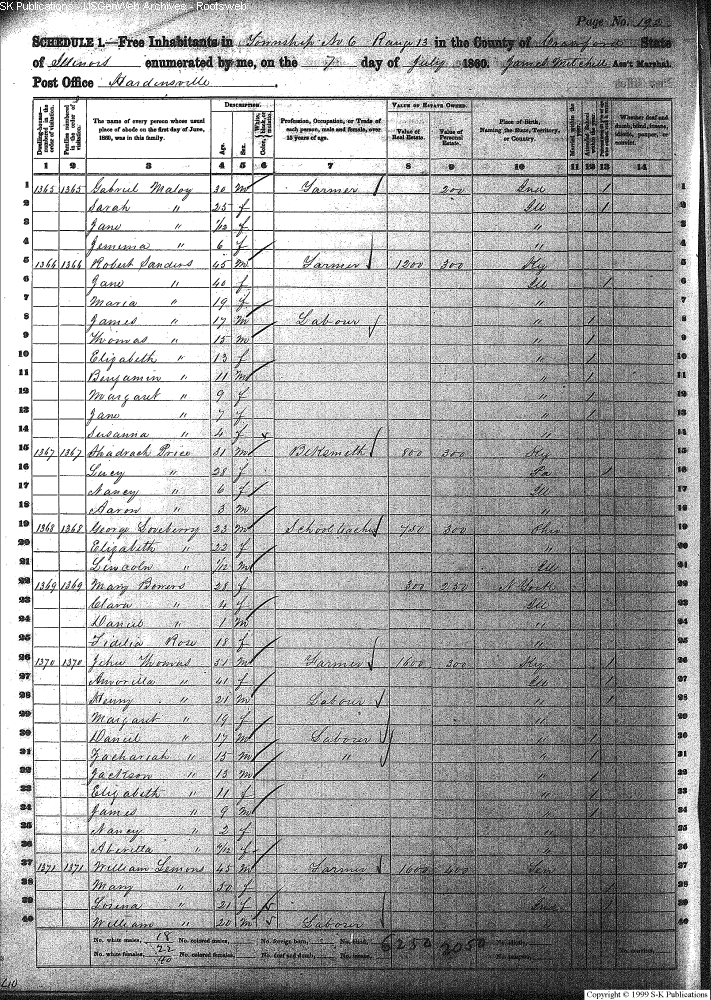 SK Publications - USGenWeb Archives - Rootsweb
Page No. 192
SCHEDULE 1.—Free Inhabitants in Township No 6 Range 13 in the County of Crawford State
of Illinois enumerated by me, on the 7 day of July 1860. James Mitchell Ass't Marshal.
Post Office Hardinsville
DESCRIPTION. VALUE OF ESTATE OWNED.
Dwelling-houses numbered in the order of visitation. Families numbered in the order of visitation. The name of every person whose usual place of abode on the first day of June, 1860, was in this family. Age. Sex. Color, White, black, or mulatto. Profession, Occupation, or Trade of each person, male and female, over 15 years of age. Value of Real Estate. Value of Personal Estate. Place of Birth, Naming the State, Territory, or Country. Married within the year. Whether deaf and dumb, blind, insane, idiotic, pauper, or convict.
1 2 3 4 5 6 7 8 9 10 11 12 13 14
1 1365 1365 Gabriel Maloy 30 m Farmer 200 Ind / 1
2 Sarah " 25 f Ill / 2
3 Jane " 1/12 f " 3
4 Jemema " 6 f " 4
5 1366 1366 Robert Sanders 45 m Farmer 1200 300 Ky 5
6 Jane " 40 f Ill / 6
7 Maria " 19 f " 7
8 James " 17 m Labour " / 8
9 Thomas " 15 m " / 9
10 Elizabeth " 13 f " / 10
11 Benjamin " 11 m " / 11
12 Margaret " 9 f " / 12
13 Jane " 7 f " / 13
14 Susanna " 4 f " 14
15 1367 1367 Shadrach Price 31 m Blksmith 800 300 Ky 15
16 Lucy " 28 f / 16
17 Nancy " 6 f Ill 17
18 Aaron " 3 m " 18
19 1368 1368 George Loveberry 23 m School teacher 750 300 Ohio 19
20 Elizabeth " 22 f " 20
21 Lincoln " /12 m Ill 21
22 1369 1369 Mary Bowers 28 f 300 250 N York 22
23 Clara " 4 f Ill 23
24 Daniel " 1 m " 24
25 Fidelia Rose 18 f " 25
26 1370 1370 John Thomas 51 m Farmer 1600 300 Ky / 26
27 Amorilla " 41 f Ill / 27
28 Henry " 21 m Labour " / 28
29 Margaret " 19 f " 29
30 Daniel " 17 m Labourer " / 30
31 Zachariah " 15 m " " / 31
32 Jackson " 13 m " / 32
33 Elizabeth " 11 f " / 33
34 James " 9 m " / 34
35 Nancy " 2 f " 35
36 Aberilla " /12 f " 36
37 1371 1371 William Lemons 45 m Farmer 1600 400 Ten 37
38 Mary " 50 f " / 38
39 Lorina " 21 f 39
40 William " 20 m Labour " 40
No. white males, 18 No. colored males, No. foreign born, No. blind, 6250 2050
No. white females, 22 No. colored females, No. deaf and dumb, No. insane,
40
Copyright © 1999 S-K Publications